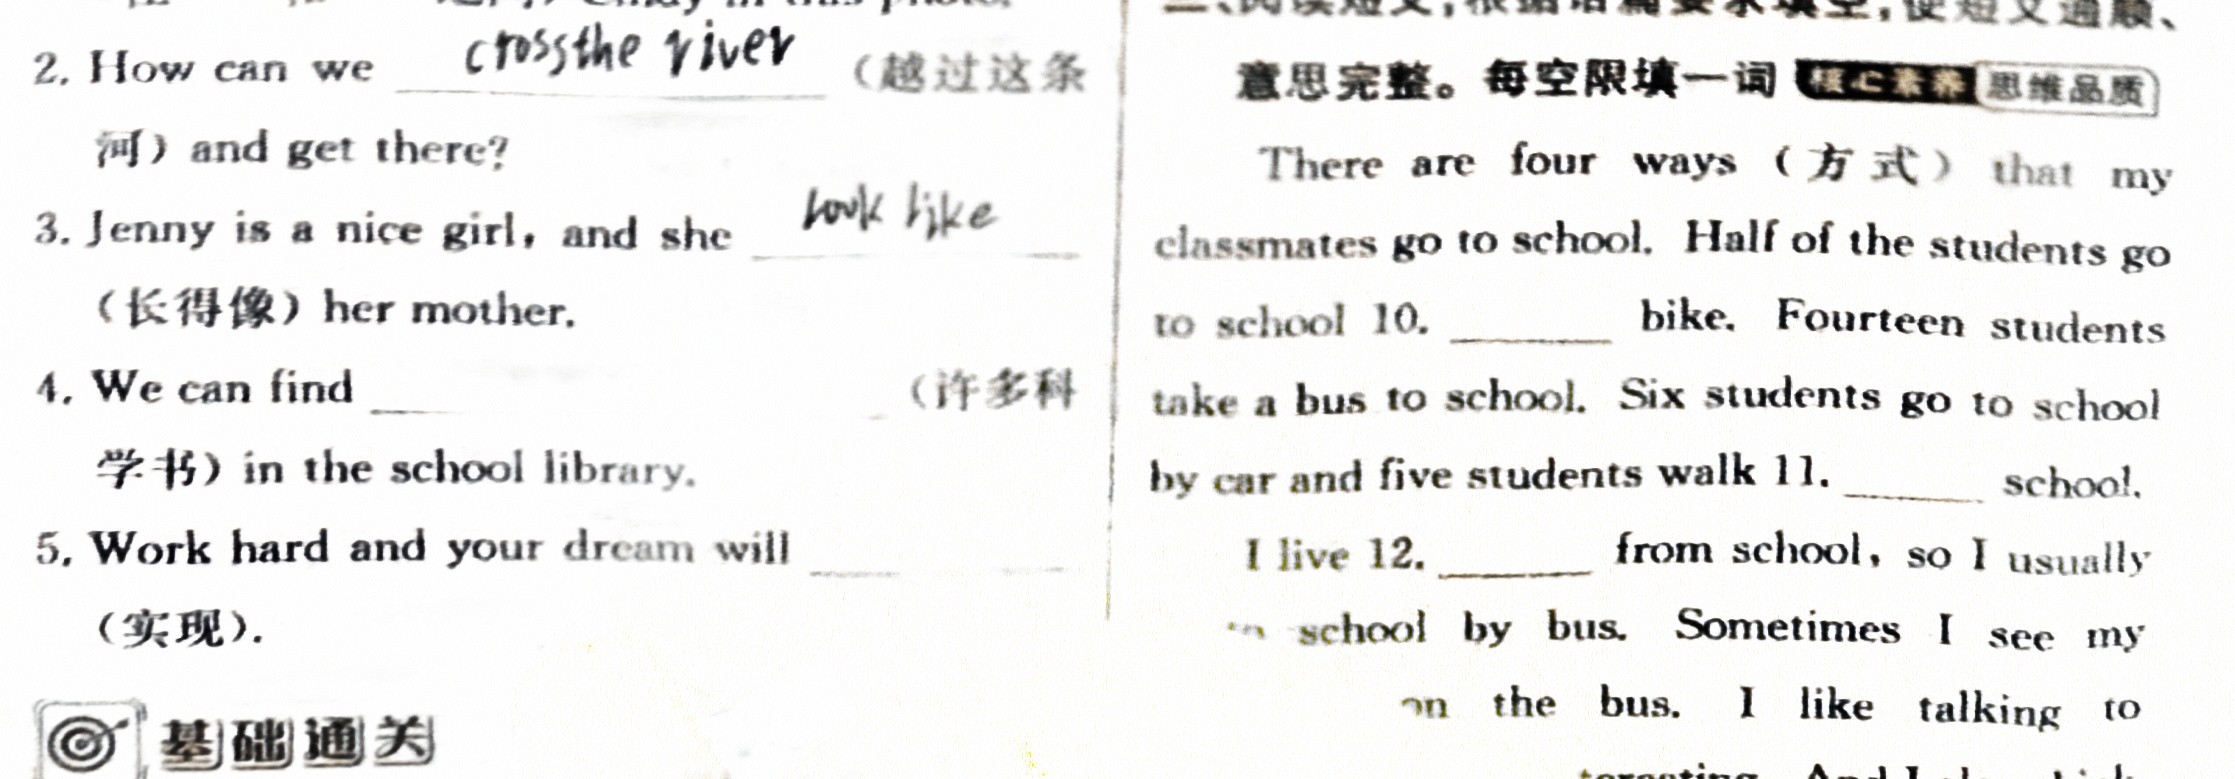 2. How can we cross the river (越过这条
河) and get there?
3. Jenny is a nice girl, and she look like
(长得像) her mother.
4. We can find ______ (许多科
学书) in the school library.
5. Work hard and your dream will ______
(实现).
基础通关
二、阅读短文,根据语篇要求填空,使短文通顺、
意思完整。每空限填一词 核心素养 思维品质
There are four ways (方式) that my
classmates go to school. Half of the students go
to school 10. ______ bike. Fourteen students
take a bus to school. Six students go to school
by car and five students walk 11. ______ school.
I live 12. ______ from school, so I usually
school by bus. Sometimes I see my
on the bus. I like talking to
And I